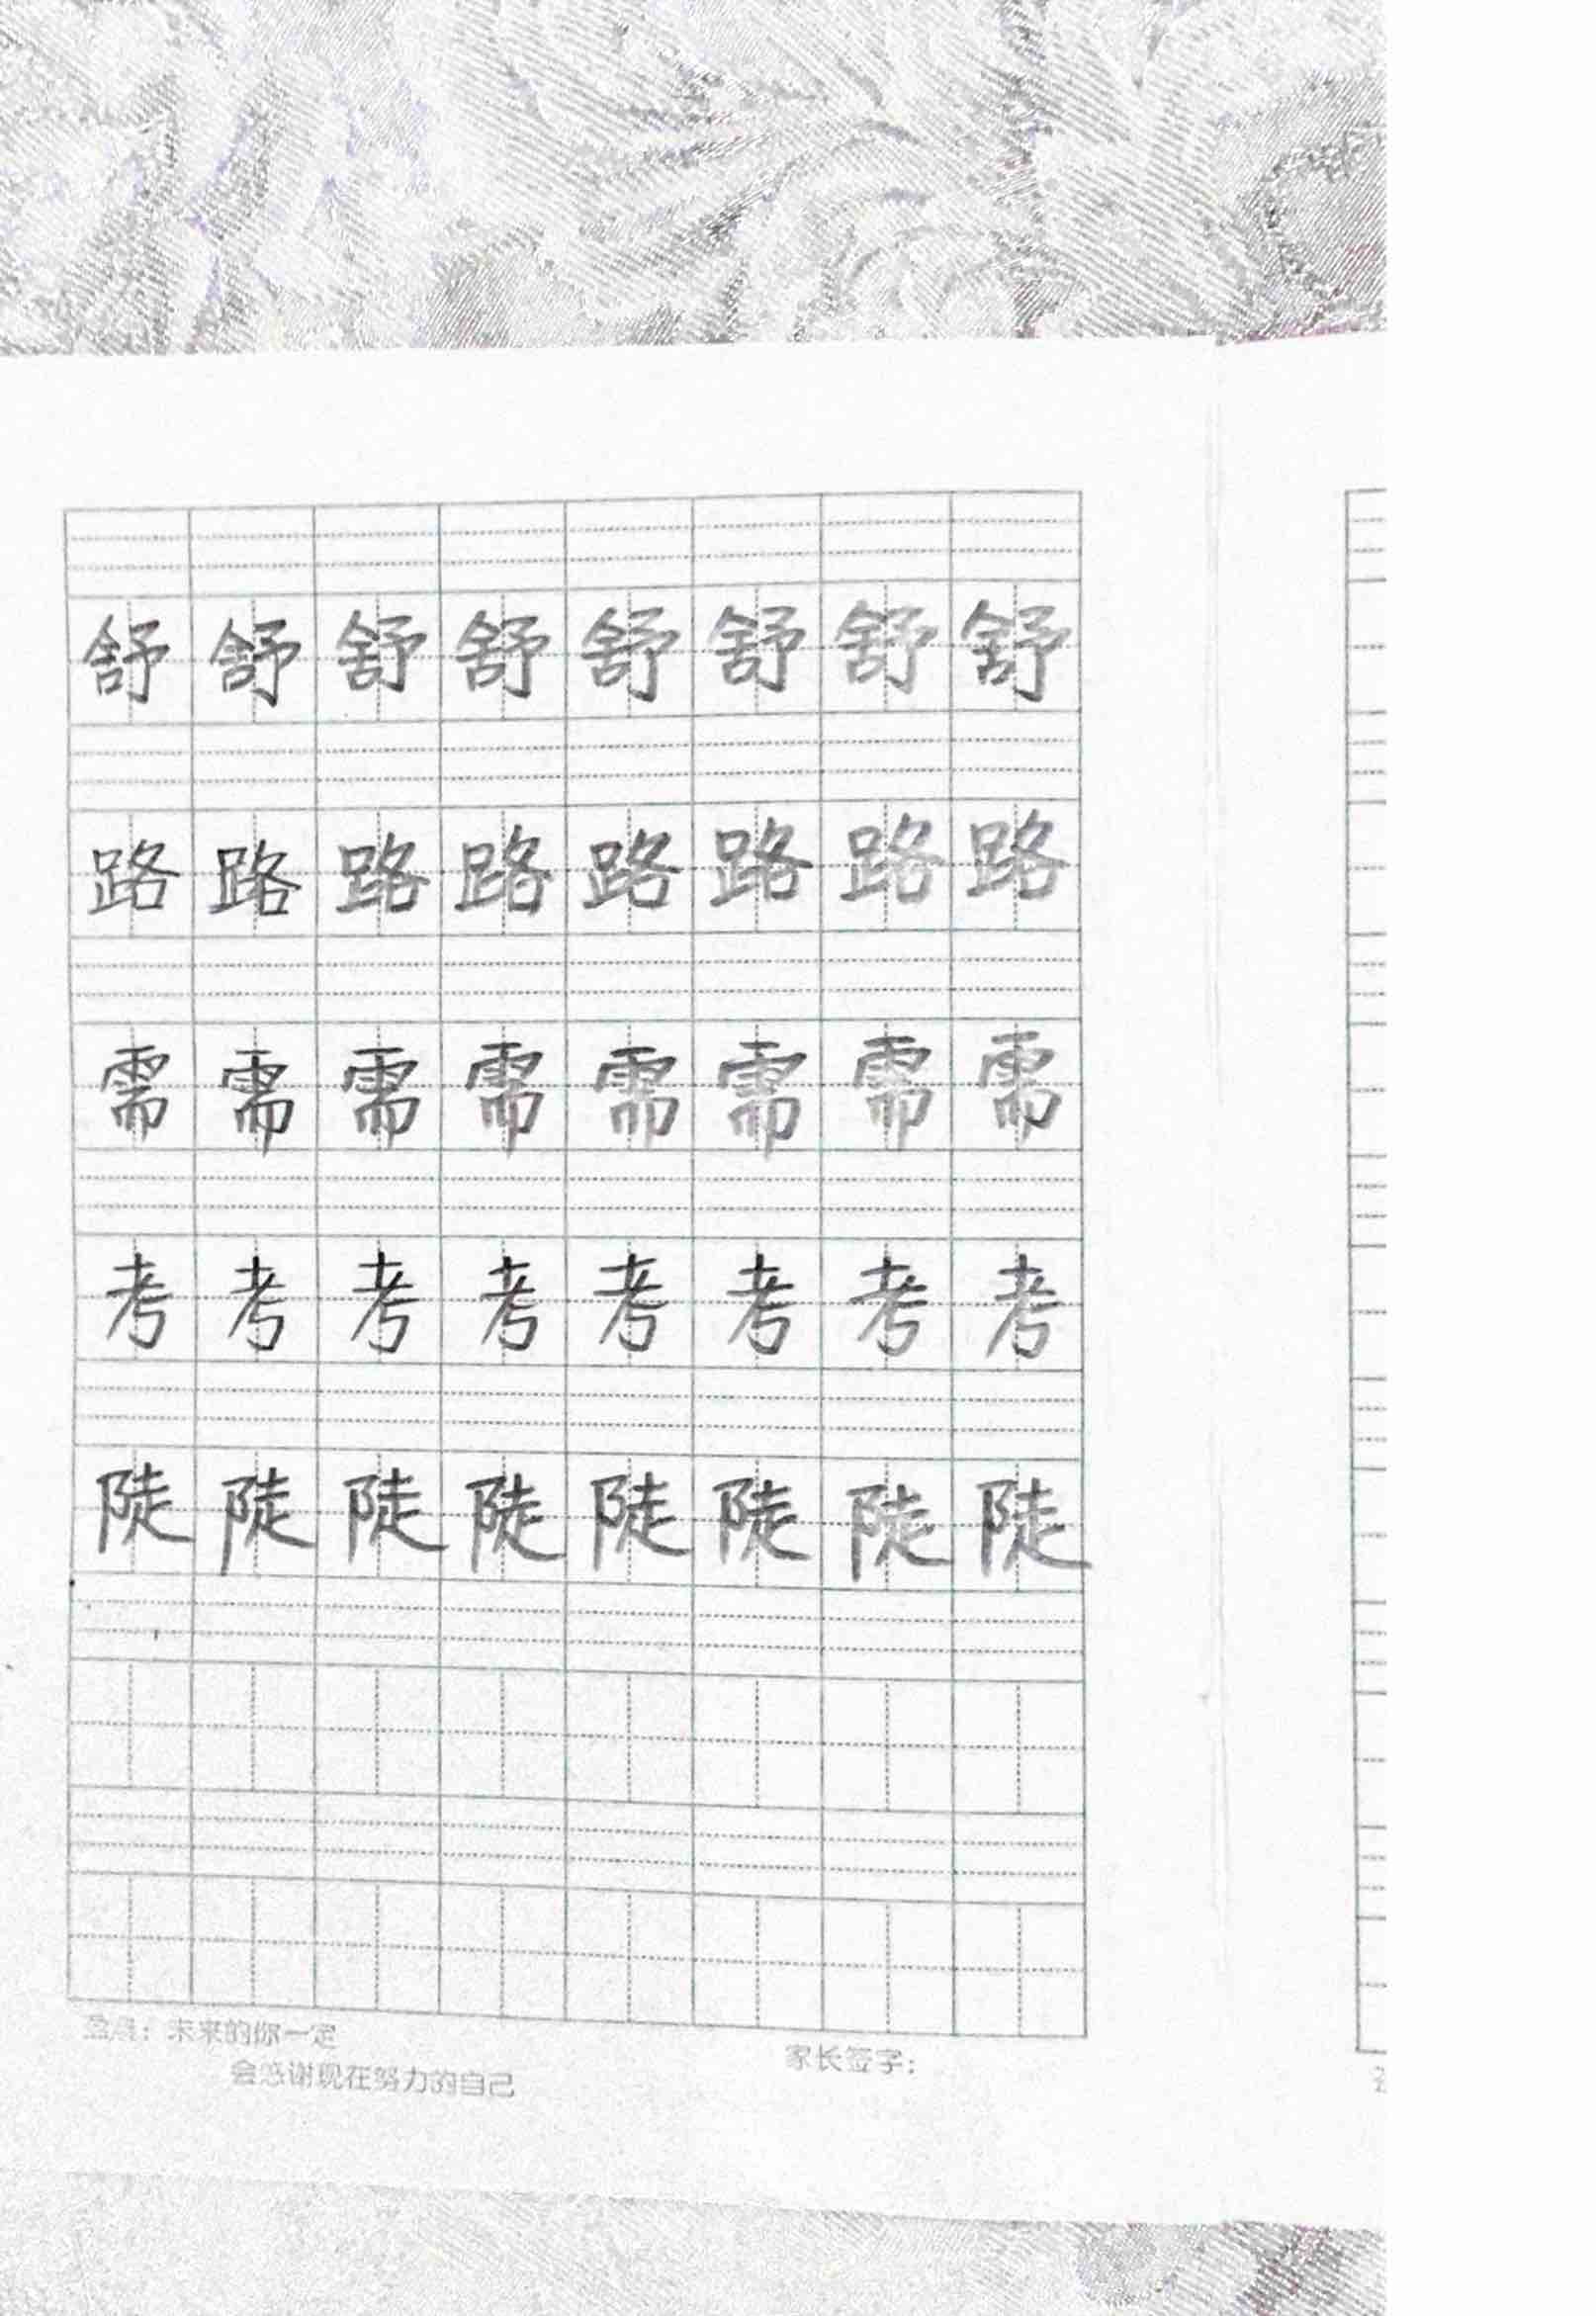 舒舒舒舒舒舒舒舒
路路路路路路路路
需需需需需需需需
考考考考考考考考
陡陡陡陡陡陡陡陡
温馨：未来的你一定
会感谢现在努力的自己
家长签字：